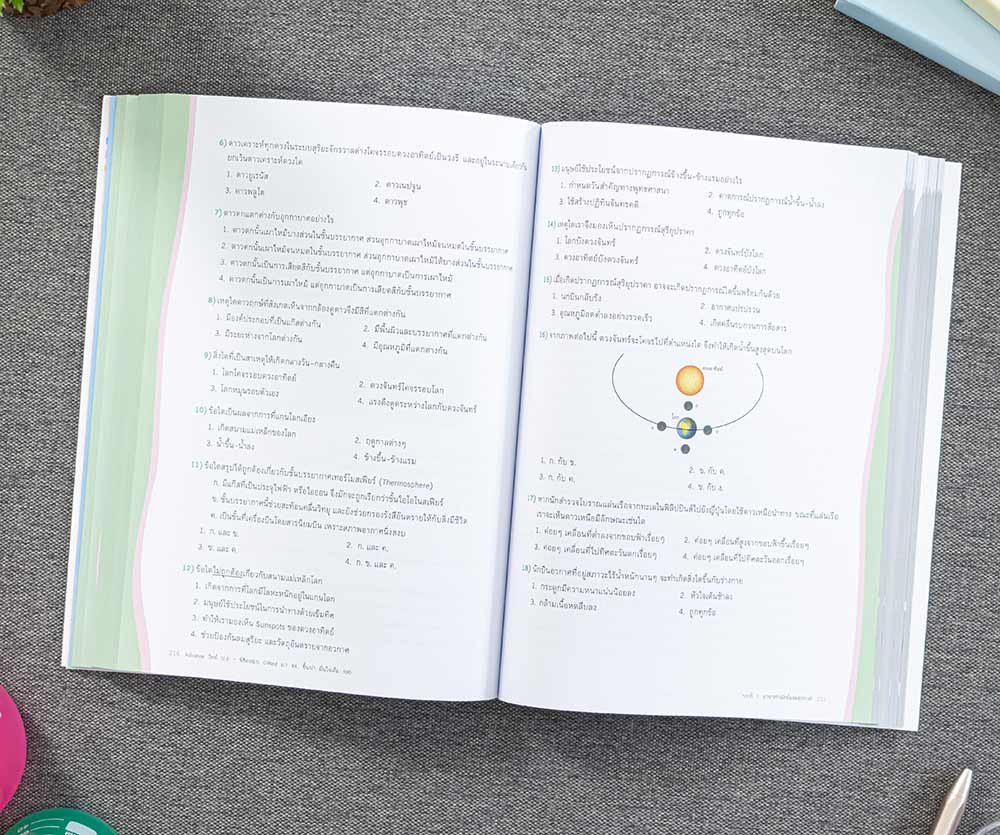 6) ดาวเคราะห์ทุกดวงในระบบสุริยะจักรวาลต่างโคจรรอบดวงอาทิตย์เป็นวงรี และอยู่ในระนาบเดียวกัน
ยกเว้นดาวเคราะห์ดวงใด
1. ดาวยูเรนัส
2. ดาวเนปจูน
3. ดาวพลูโต
4. ดาวพุธ
7) ดาวตกแตกต่างกับอุกกาบาตอย่างไร
1. ดาวตกนั้นเผาไหม้บางส่วนในชั้นบรรยากาศ ส่วนอุกกาบาตเผาไหม้จนหมดในชั้นบรรยากาศ
2. ดาวตกนั้นเผาไหม้จนหมดในชั้นบรรยากาศ ส่วนอุกกาบาตเผาไหม้ได้บางส่วนในชั้นบรรยากาศ
3. ดาวตกนั้นเป็นการเสียดสีกับชั้นบรรยากาศ แต่อุกกาบาตเป็นการเผาไหม้
4. ดาวตกนั้นเป็นการเผาไหม้ แต่อุกกาบาตเป็นการเสียดสีกับชั้นบรรยากาศ
8) เหตุใดดาวฤกษ์ที่สังเกตเห็นจากกล้องดูดาวจึงมีสีที่แตกต่างกัน
1. มีองค์ประกอบที่เป็นแก๊สต่างกัน
2. มีพื้นผิวและบรรยากาศที่แตกต่างกัน
3. มีระยะห่างจากโลกต่างกัน
4. มีอุณหภูมิที่แตกต่างกัน
9) สิ่งใดที่เป็นสาเหตุให้เกิดกลางวัน-กลางคืน
1. โลกโคจรรอบดวงอาทิตย์
2. ดวงจันทร์โคจรรอบโลก
3. โลกหมุนรอบตัวเอง
4. แรงดึงดูดระหว่างโลกกับดวงจันทร์
10) ข้อใดเป็นผลจากการที่แกนโลกเอียง
1. เกิดสนามแม่เหล็กของโลก
2. ฤดูกาลต่างๆ
3. น้ำขึ้น-น้ำลง
4. ข้างขึ้น-ข้างแรม
11) ข้อใดสรุปได้ถูกต้องเกี่ยวกับชั้นบรรยากาศเทอร์โมสเฟียร์ (Thermosphere)
ก. มีแก๊สที่เป็นประจุไฟฟ้า หรือไอออน จึงมักจะถูกเรียกว่าชั้นไอโอโนสเฟียร์
ข. ชั้นบรรยากาศนี้ช่วยสะท้อนคลื่นวิทยุ และยังช่วยกรองรังสีอันตรายให้กับสิ่งมีชีวิต
ค. เป็นชั้นที่เครื่องบินโดยสารนิยมบิน เพราะสภาพอากาศนิ่งสงบ
1. ก. และ ข.
2. ก. และ ค.
3. ข. และ ค.
4. ก. ข. และ ค.
12) ข้อใดไม่ถูกต้องเกี่ยวกับสนามแม่เหล็กโลก
1. เกิดจากการที่โลกมีโลหะหนักอยู่ในแกนโลก
2. มนุษย์ใช้ประโยชน์ในการนำทางด้วยเข็มทิศ
3. ทำให้เรามองเห็น Sunspots ของดวงอาทิตย์
4. ช่วยป้องกันลมสุริยะ และวัตถุอันตรายจากอวกาศ
216 Advance วิทย์ ป.6 - พิชิตสอบ
13) มนุษย์ใช้ประโยชน์จากปรากฏการณ์ข้างขึ้น-ข้างแรมอย่างไร
1. กำหนดวันสำคัญทางพุทธศาสนา
2. คาดการณ์ปรากฏการณ์น้ำขึ้น-น้ำลง
3. ใช้สร้างปฏิทินจันทรคติ
4. ถูกทุกข้อ
14) เหตุใดเราจึงมองเห็นปรากฏการณ์สุริยุปราคา
1. โลกบังดวงจันทร์
2. ดวงจันทร์บังโลก
3. ดวงอาทิตย์บังดวงจันทร์
4. ดวงอาทิตย์บังโลก
15) เมื่อเกิดปรากฏการณ์สุริยุปราคา อาจจะเกิดปรากฏการณ์ใดขึ้นพร้อมกันด้วย
1. นกบินกลับรัง
2. อากาศแปรปรวน
3. อุณหภูมิลดต่ำลงอย่างรวดเร็ว
4. เกิดคลื่นรบกวนการสื่อสาร
16) จากภาพต่อไปนี้ ดวงจันทร์จะโคจรไปที่ตำแหน่งใด จึงทำให้เกิดน้ำขึ้นสูงสุดบนโลก
ดวงอาทิตย์
โลก
1. ก. กับ ข.
2. ข. กับ ค.
3. ก. กับ ค.
4. ข. กับ ง.
17) หากนักสำรวจโบราณแล่นเรือจากทะเลในฟิลิปปินส์ไปยังญี่ปุ่นโดยใช้ดาวเหนือนำทาง ขณะที่แล่นเรือ
เราจะเห็นดาวเหนือมีลักษณะเช่นใด
1. ค่อยๆ เคลื่อนที่ต่ำลงจากขอบฟ้าเรื่อยๆ
2. ค่อยๆ เคลื่อนที่สูงจากขอบฟ้าขึ้นเรื่อยๆ
3. ค่อยๆ เคลื่อนที่ไปทิศตะวันตกเรื่อยๆ
4. ค่อยๆ เคลื่อนที่ไปทิศตะวันออกเรื่อยๆ
18) นักบินอวกาศที่อยู่สภาวะไร้น้ำหนักนานๆ จะทำเกิดสิ่งใดขึ้นกับร่างกาย
1. กระดูกมีความหนาแน่นน้อยลง
2. หัวใจเต้นช้าลง
3. กล้ามเนื้อหดลีบลง
4. ถูกทุกข้อ